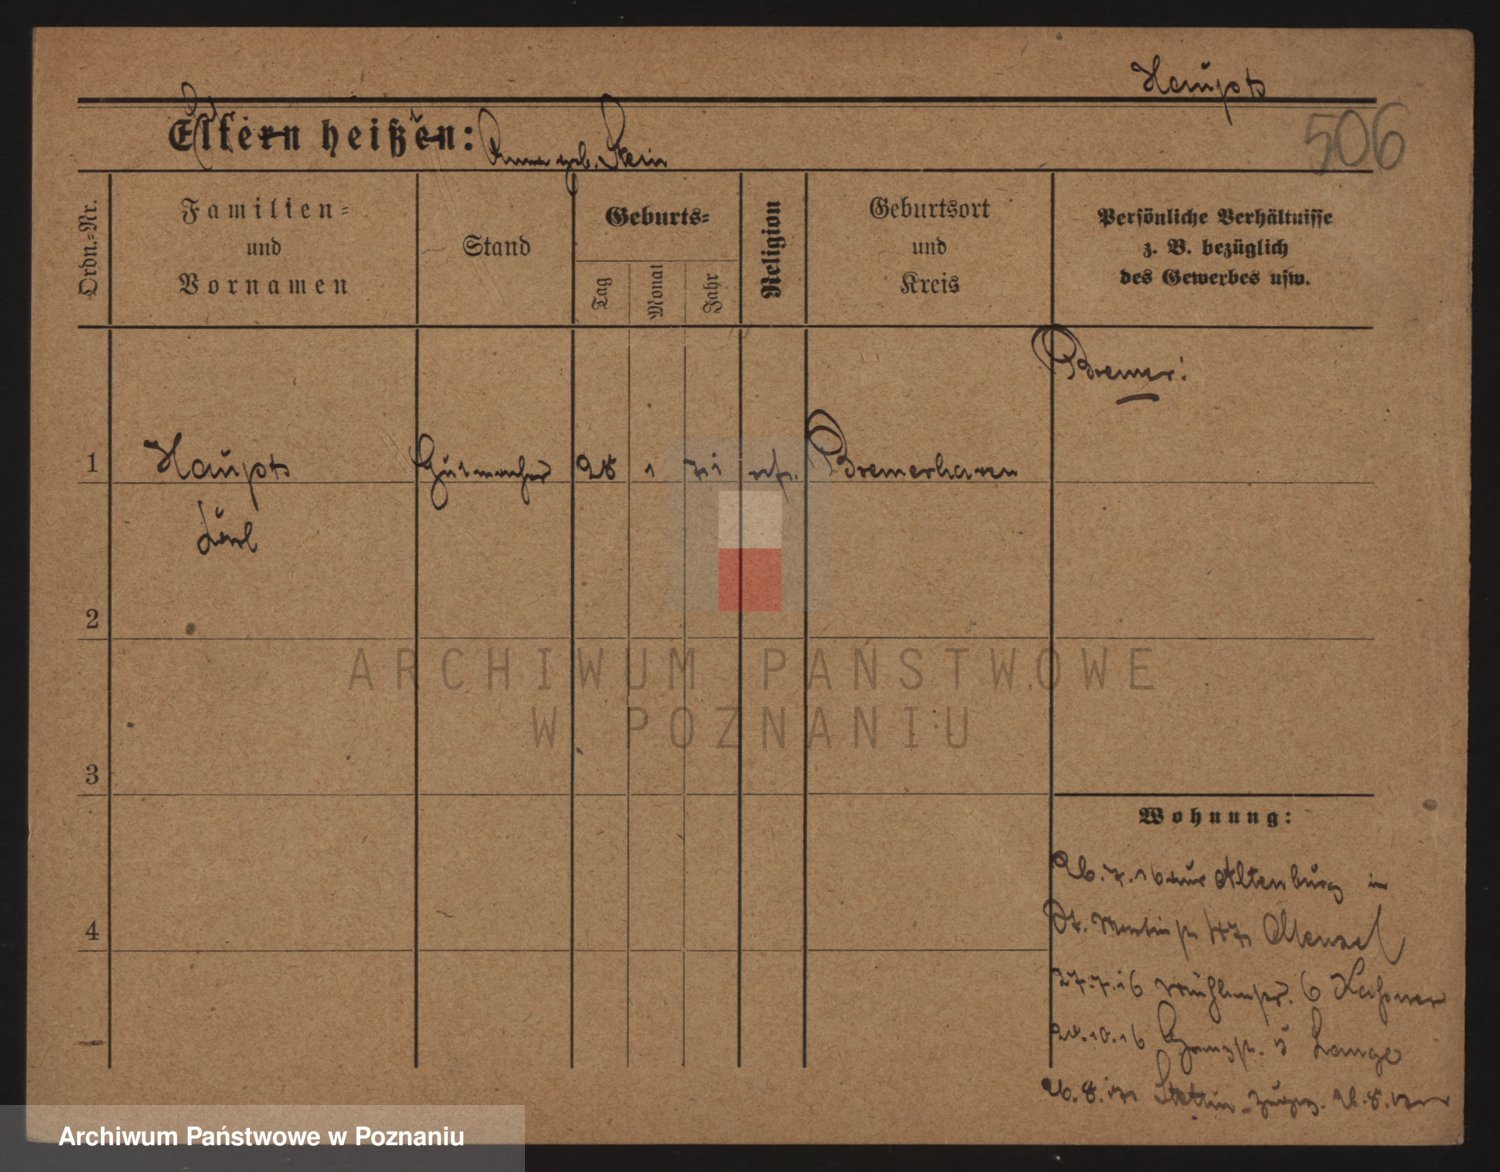 Haupts
506
Eltern heißen:
geb. Stein
Ordn.-Nr.
Familien-
und
Vornamen
Stand
Geburts-
Tag
Monat
Jahr
Religion
Geburtsort
und
Kreis
Persönliche Verhältnisse
z. B. bezüglich
des Gewerbes usw.
Bremer:
1 Haupts Hutmacher 28 1 71 ref. Bremerhaven
Karl
2
3
4
ARCHIWUM PAŃSTWOWE
W POZNANIU
Wohnung:
26.7.16 aus Altenburg in
St. Martinstr 47 Menzel
27.7.16 Mühlenstr. 6 Kaßner
10.16 Lange
Stettin
Archiwum Państwowe w Poznaniu